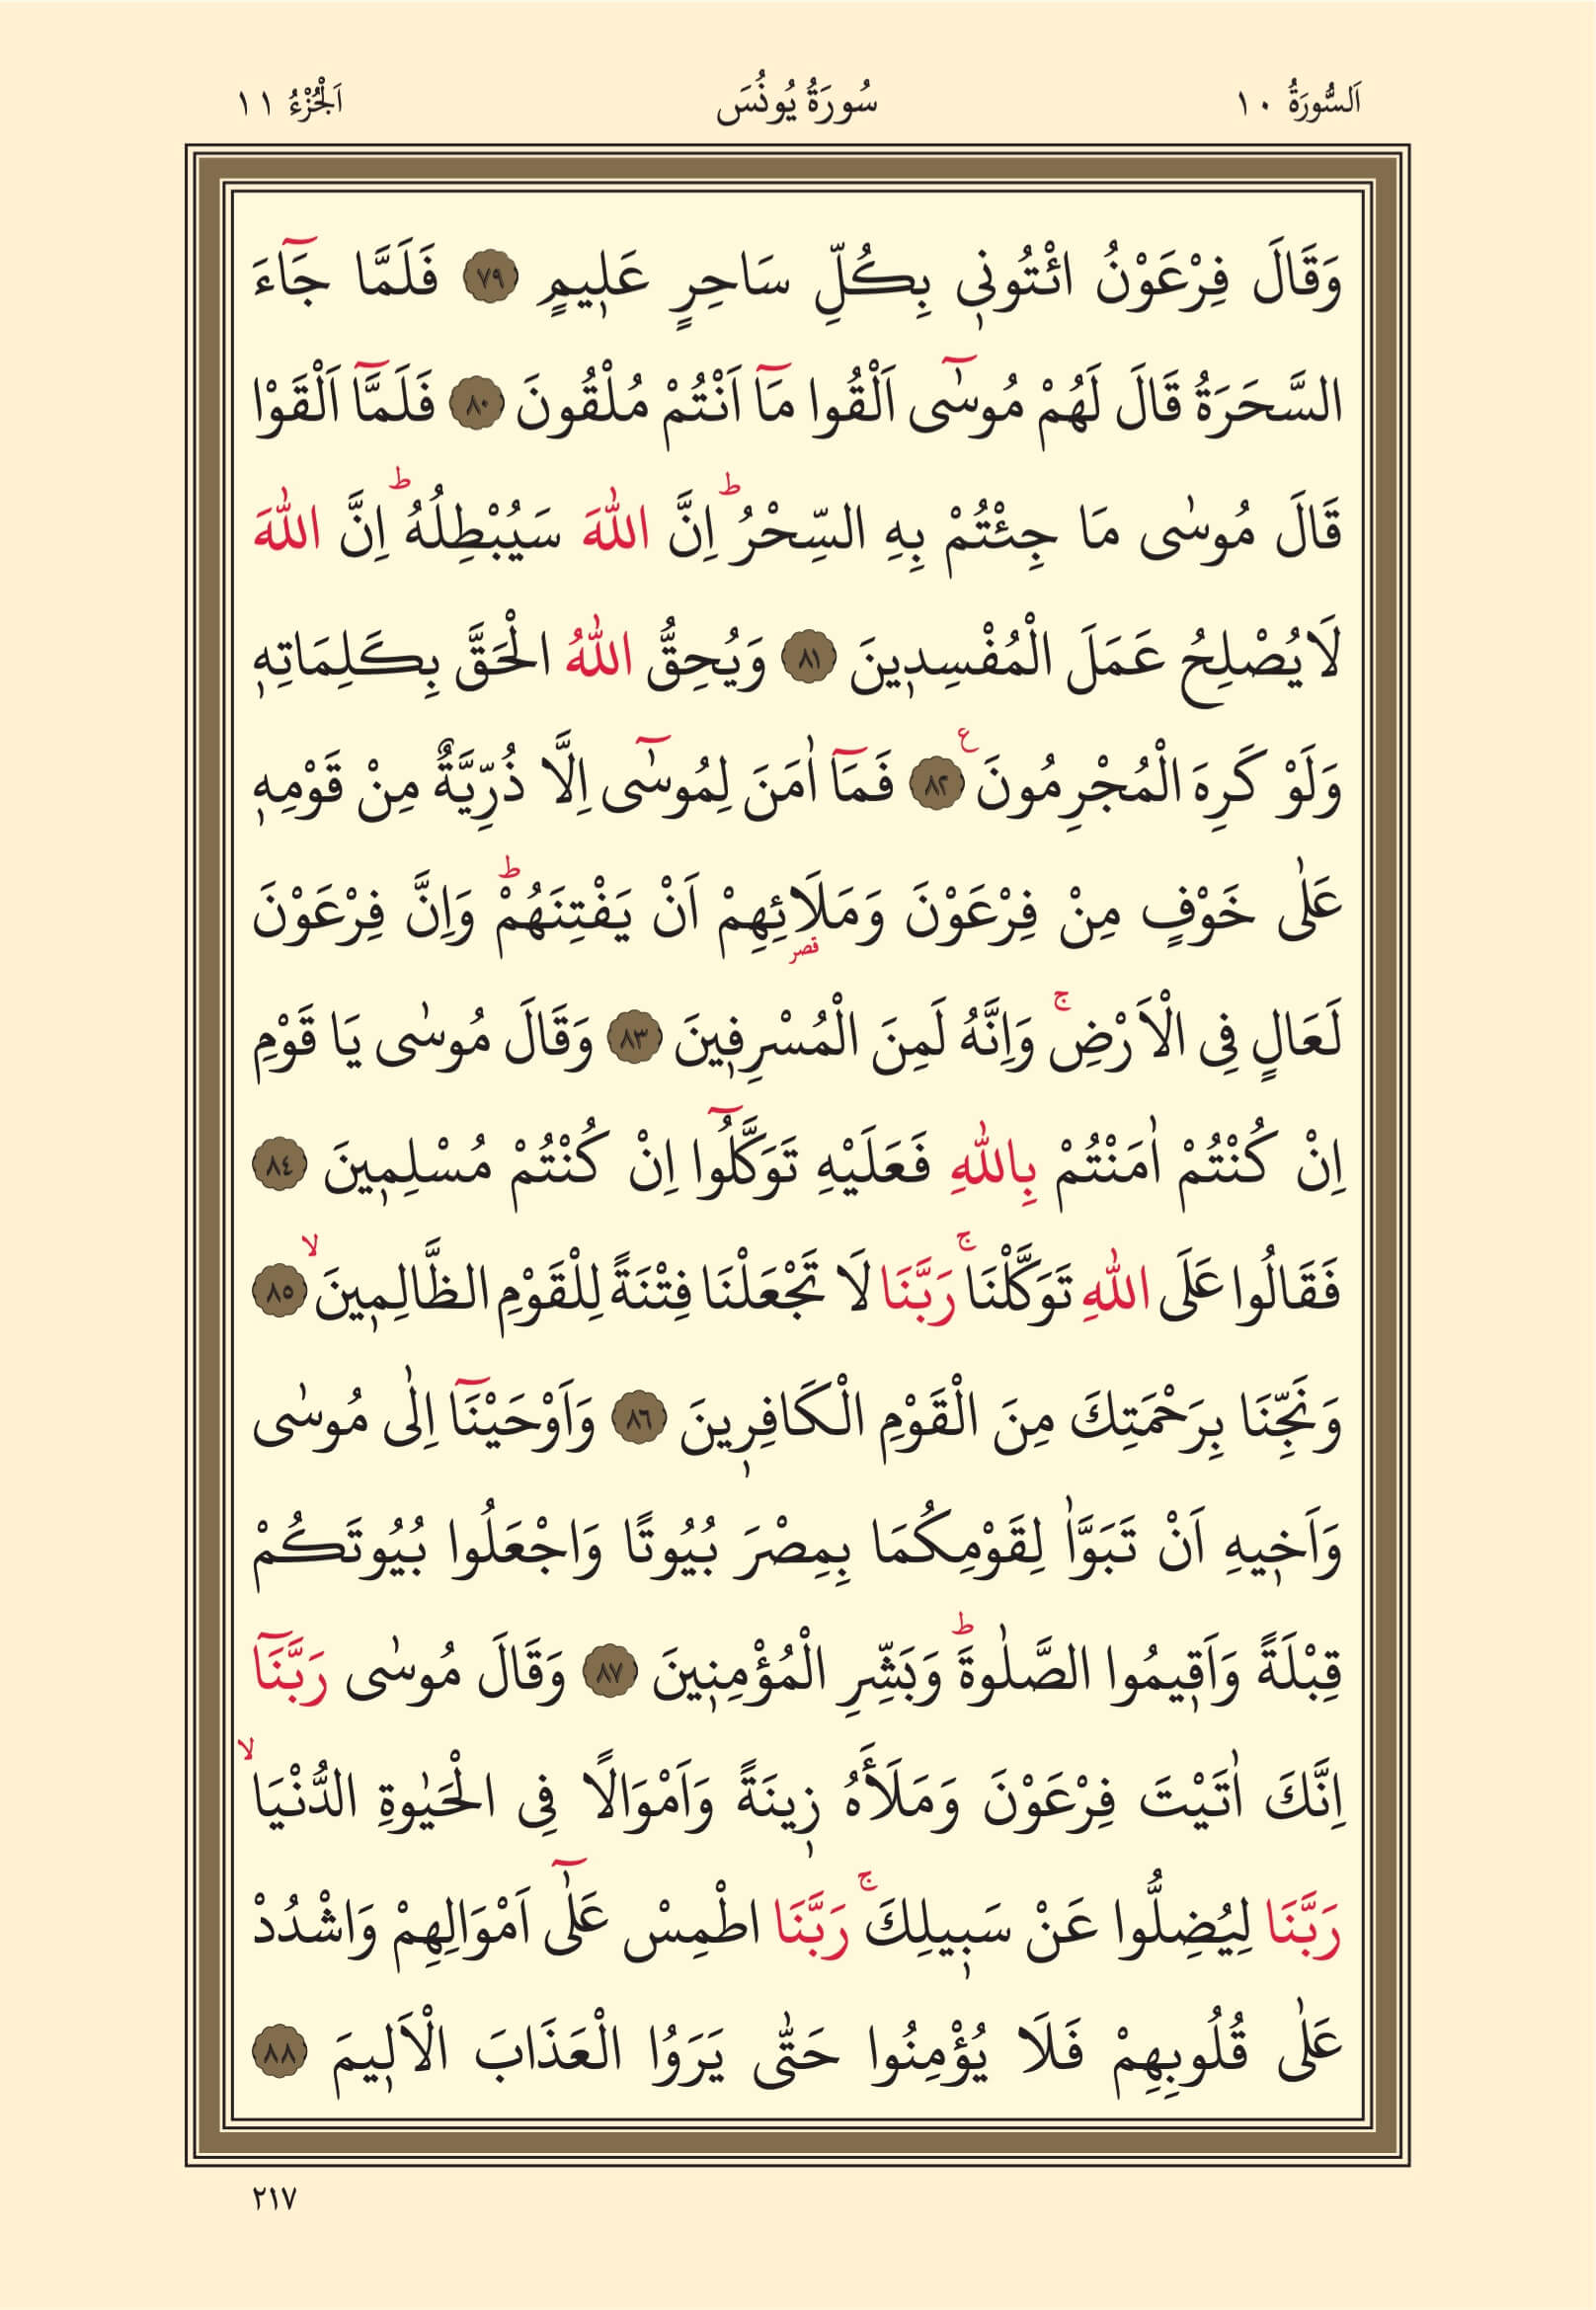 اَلسُّورَةُ ١٠ سُورَةُ يُونُسَ اَلْجُزْءُ ١١
وَقَالَ فِرْعَوْنُ ائْتُونٖي بِكُلِّ سَاحِرٍ عَلٖيمٍ ٧٩ فَلَمَّا جَٓاءَ
السَّحَرَةُ قَالَ لَهُمْ مُوسٰٓى اَلْقُوا مَٓا اَنْتُمْ مُلْقُونَ ٨٠ فَلَمَّٓا اَلْقَوْا
قَالَ مُوسٰى مَا جِئْتُمْ بِهِ السِّحْرُؕ اِنَّ اللّٰهَ سَيُبْطِلُهُؕ اِنَّ اللّٰهَ
لَا يُصْلِحُ عَمَلَ الْمُفْسِدٖينَ ٨١ وَيُحِقُّ اللّٰهُ الْحَقَّ بِكَلِمَاتِهٖ
وَلَوْ كَرِهَ الْمُجْرِمُونَ ٨٢ ع فَمَٓا اٰمَنَ لِمُوسٰٓى اِلَّا ذُرِّيَّةٌ مِنْ قَوْمِهٖ
عَلٰى خَوْفٍ مِنْ فِرْعَوْنَ وَمَلَا۬ئِهِمْ اَنْ يَفْتِنَهُمْؕ وَاِنَّ فِرْعَوْنَ
قصر
لَعَالٍ فِي الْاَرْضِۚ وَاِنَّهُ لَمِنَ الْمُسْرِفٖينَ ٨٣ وَقَالَ مُوسٰى يَا قَوْمِ
اِنْ كُنْتُمْ اٰمَنْتُمْ بِاللّٰهِ فَعَلَيْهِ تَوَكَّلُٓوا اِنْ كُنْتُمْ مُسْلِمٖينَ ٨٤
فَقَالُوا عَلَى اللّٰهِ تَوَكَّلْنَاۚ رَبَّنَا لَا تَجْعَلْنَا فِتْنَةً لِلْقَوْمِ الظَّالِمٖينَۙ ٨٥
وَنَجِّنَا بِرَحْمَتِكَ مِنَ الْقَوْمِ الْكَافِرٖينَ ٨٦ وَاَوْحَيْنَٓا اِلٰى مُوسٰى
وَاَخٖيهِ اَنْ تَبَوَّاٰ لِقَوْمِكُمَا بِمِصْرَ بُيُوتًا وَاجْعَلُوا بُيُوتَكُمْ
قِبْلَةً وَاَقٖيمُوا الصَّلٰوةَؕ وَبَشِّرِ الْمُؤْمِنٖينَ ٨٧ وَقَالَ مُوسٰى رَبَّنَٓا
اِنَّكَ اٰتَيْتَ فِرْعَوْنَ وَمَلَأَهُ زٖينَةً وَاَمْوَالًا فِي الْحَيٰوةِ الدُّنْيَاۙ
رَبَّنَا لِيُضِلُّوا عَنْ سَبٖيلِكَۚ رَبَّنَا اطْمِسْ عَلٰٓى اَمْوَالِهِمْ وَاشْدُدْ
عَلٰى قُلُوبِهِمْ فَلَا يُؤْمِنُوا حَتّٰى يَرَوُا الْعَذَابَ الْاَلٖيمَ ٨٨
٢١٧